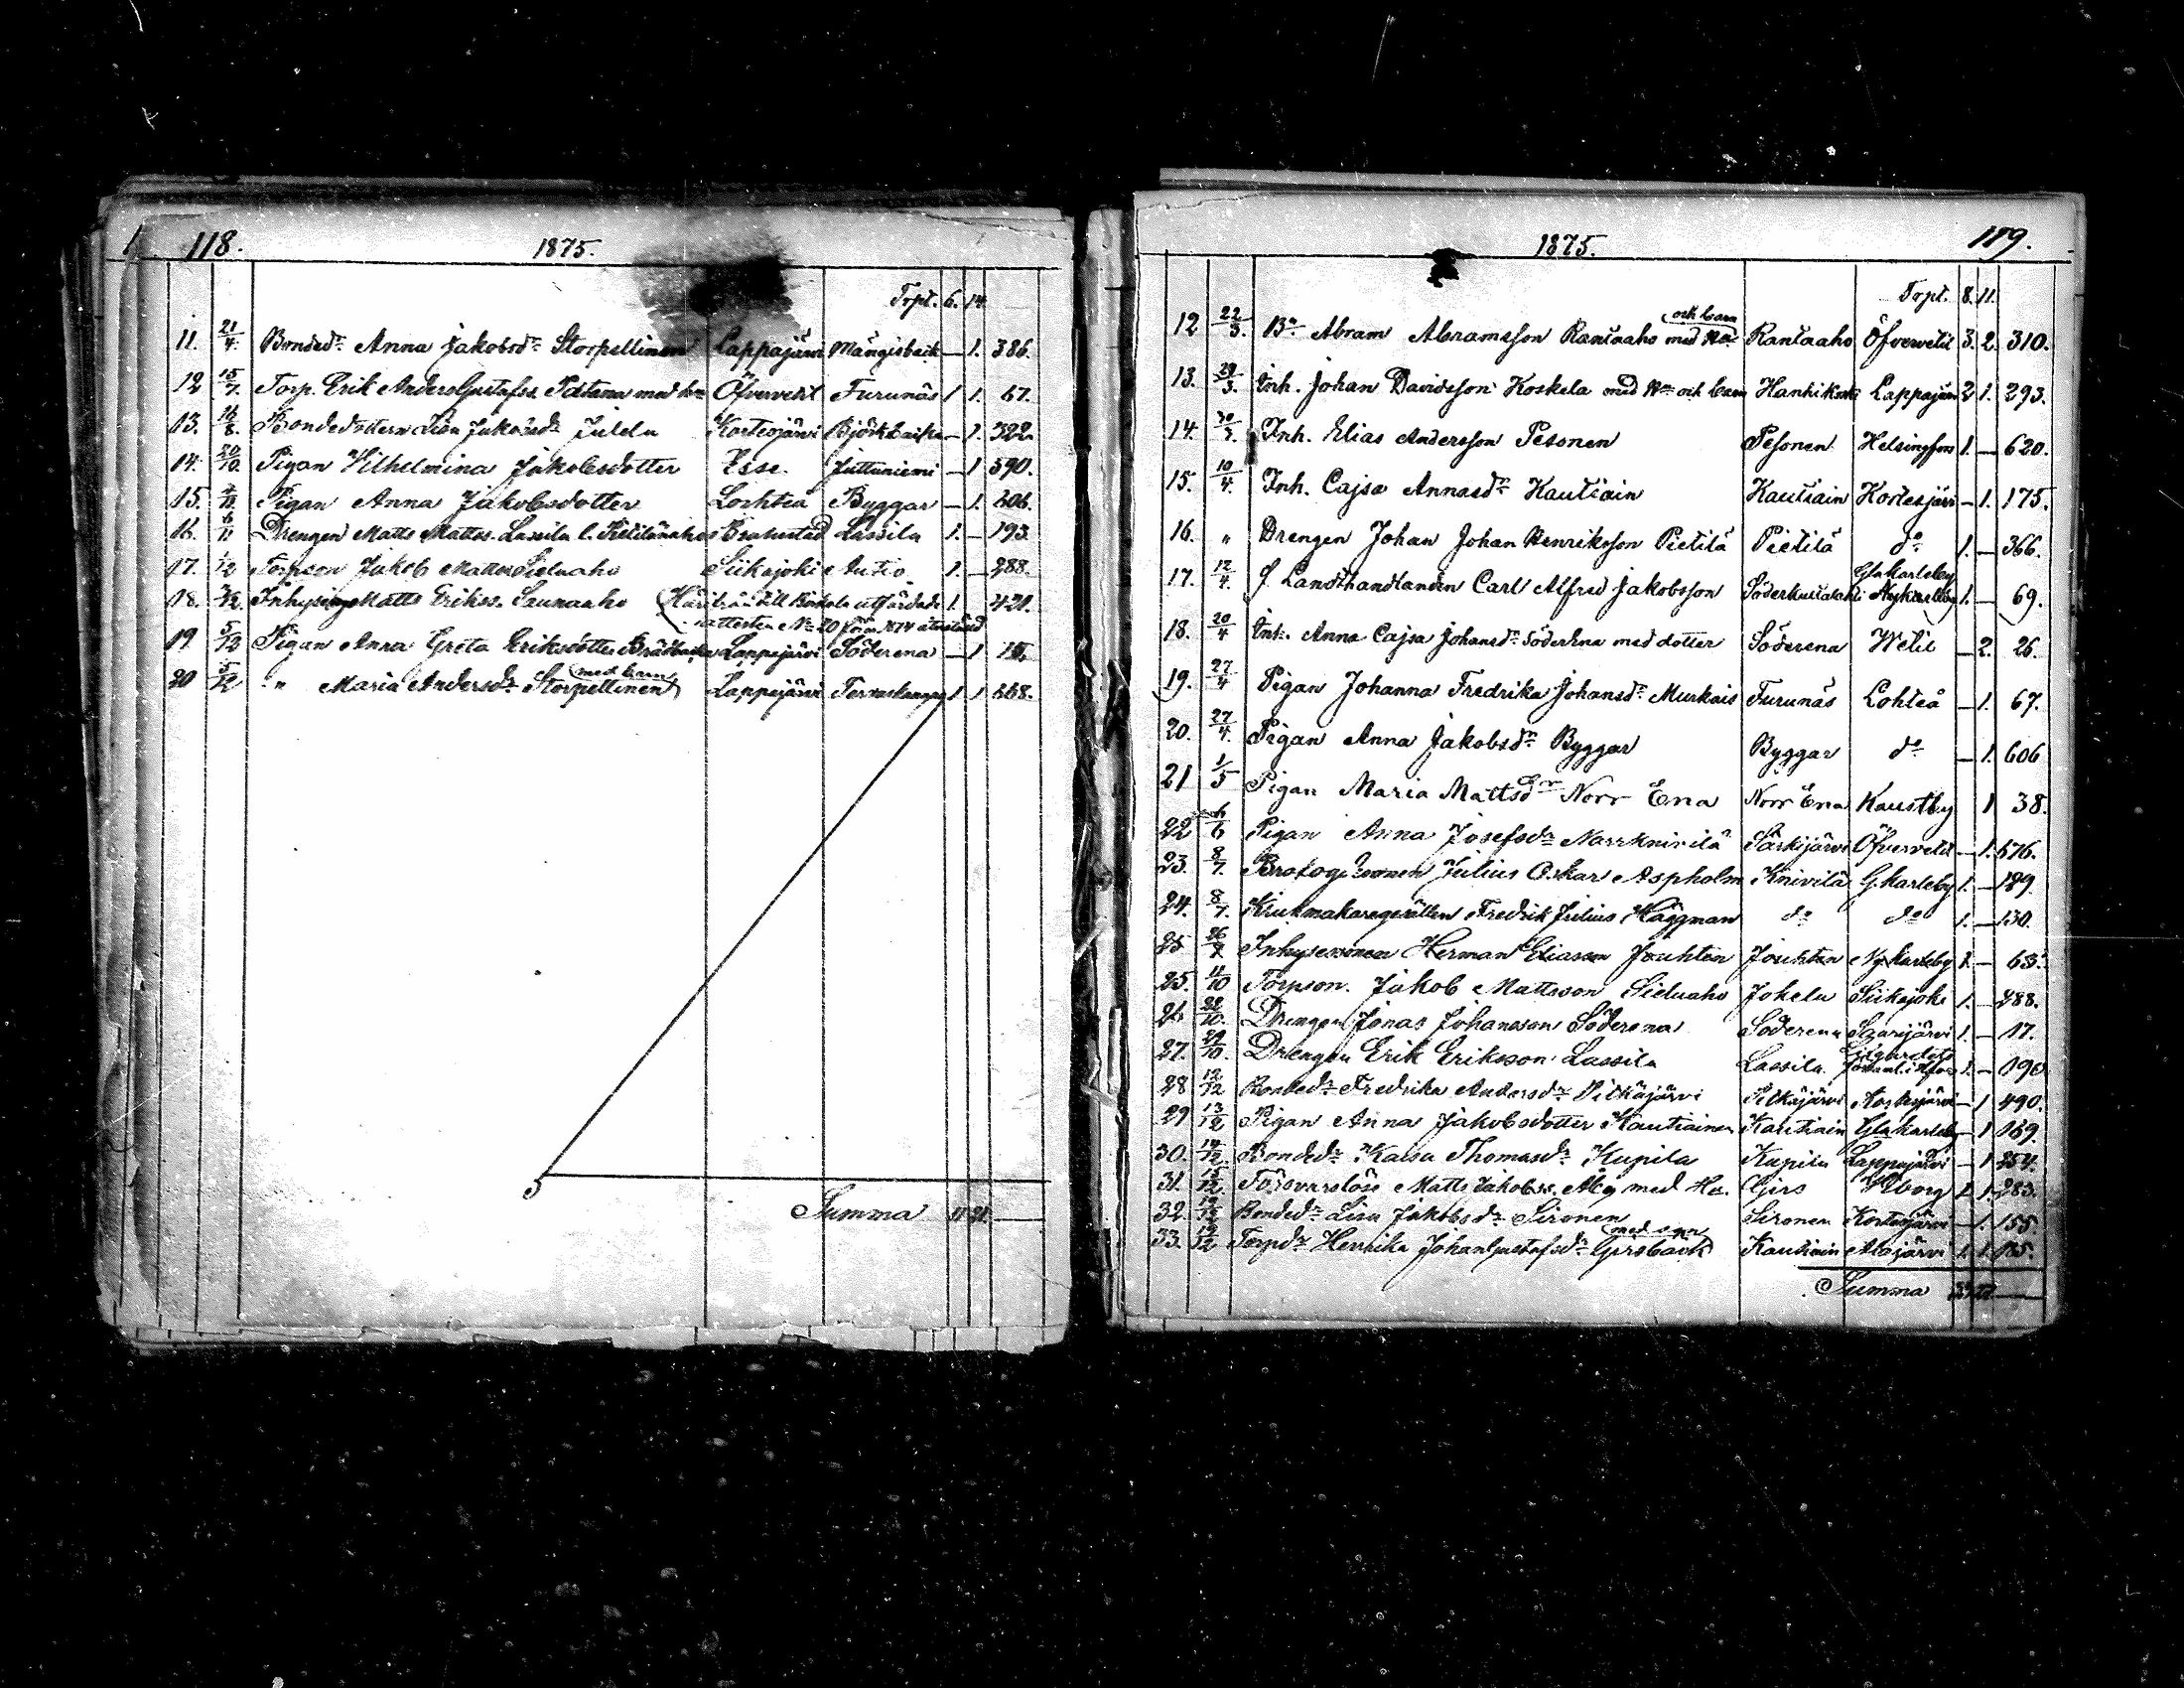 118.
1875.
Trpt. 6. 14.
11. 21/4. Bonded:r Anna Jakobsd:r Storpellinen Lappajärvi Mångsbaik — 1. 386.
12 15/7. Torp. Erik AndersGustafss. Pastana med hu Öfvervetil Furunäs 1 1. 67.
13. 16/8. Bondedottern Lisa Jakobsd:r Julela Kortesjärvi Björkbacka — 1. 322.
14. 20/10. Pigan Vilhelmina Jakobsdotter Esse. Juttuniemi — 1 590.
15. Pigan Anna Jakobsdotter Lochteå Byggar — 1. 206.
16. 6/11 Drengen Matts Mattss. Lassila l. Pietilänaho Brahestad Lassila 1. — 193
17. 1/12 Torpson Jakob Mattss Sieluaho Siikajoki Autio 1. — 288.
18. Inhysing Matts Erikss. Saunaaho (Härifrån till Kiukala utfärdade 1. 421.
attesten N:o 20 från 1874 återstäld
19 5/12 Pigan Anna Greta Eriksdotter Brådbacka Lappajärvi Söderena — 1 15.
med barn
20 5/12 " Maria Andersd:r Storpellinen Lappajärvi Ternuskangas 1 1 668.
Summa 11 21 —
1875.
119.
Trpt. 8. 11.
och barn
12 22/3. B:n Abram Abramsson Rantaaho med Hu Rantaaho Öfvervetil 3. 2. 310.
13. 29/3. Inh. Johan Davidsson Koskela med Hu och barn Hanhikoski Lappajärvi 2 1. 293.
14. 30/3. Inh. Elias Andersson Pesonen Pesonen Helsingfors 1. — 620.
15. 10/4. Inh. Cajsa Annasd:r Kautiain Kautiain Kortesjärvi — 1. 175.
16. " Drengen Johan Johan Henriksson Pietilä Pietilä d:o 1. — 366.
Glakarleby
17. 12/4. f. Landthandlanden Carl Alfred Jakobsson Nykarleby 1. — 69.
18. 20/4 Inh. Anna Cajsa Johansd:r Söderena med dotter Söderena Wetil — 2. 26.
19. 27/4 Pigan Johanna Fredrika Johansd:r Murkais Furunäs Lohteå — 1. 67.
20. 27/4. Pigan Anna Jakobsd:r Byggar Byggar d:o — 1. 606
21 1/5 Pigan Maria Mattsd:r Norr Ena Norr Ena Kaustby 1 38.
22 6/6 Pigan Anna Josefsd:r Norrknivilä Särkijärvi Öfvervetil — 1. 576.
23. 8/7. Julius Oskar Aspholm Knivilä G.karleby 1. — 129.
24. 8/7. Krukmakaregesällen Fredrik Julius Häggman d:o d:o 1. — 130.
25 26/7 Inhysesonen Herman Eliasson Jouhten Jouhten Ny.karleby 1. — 63.
25. 11/10 Torpson. Jakob Mattsson Sieluaho Jokela Siikajoki 1. — 288.
26 28/10. Drengen Jonas Johansson Söderena Söderena Saarijärvi 1. — 17.
27. 29/10. Drengen Erik Eriksson Lassila Lassila 1. — 190
28 12/12 Bonded:r Fredrika Andersd:r Pitkäjärvi Pitkäjärvi Kortesjärvi — 1 490.
29 13/12 Pigan Anna Jakobsdotter Kautiainen Kautiain Glakarleby — 1 169.
30. 14/12. Bonded:r Kaisa Thomasd:r Kupila Kupila Lappajärvi — 1 254.
31. 15/12. Försvarslöse Matts Jakobss. Alg med Hu. Girs Wiborg 1 1. 283.
32. Bonded:r Lisa Jakobsd:r Sironen Sironen Kortesjärvi — 1. 155.
med son
33. Torpd:r Henrika JohanGustafsd:r Girsback Kautiain Alajärvi 1. 1. 185.
Summa